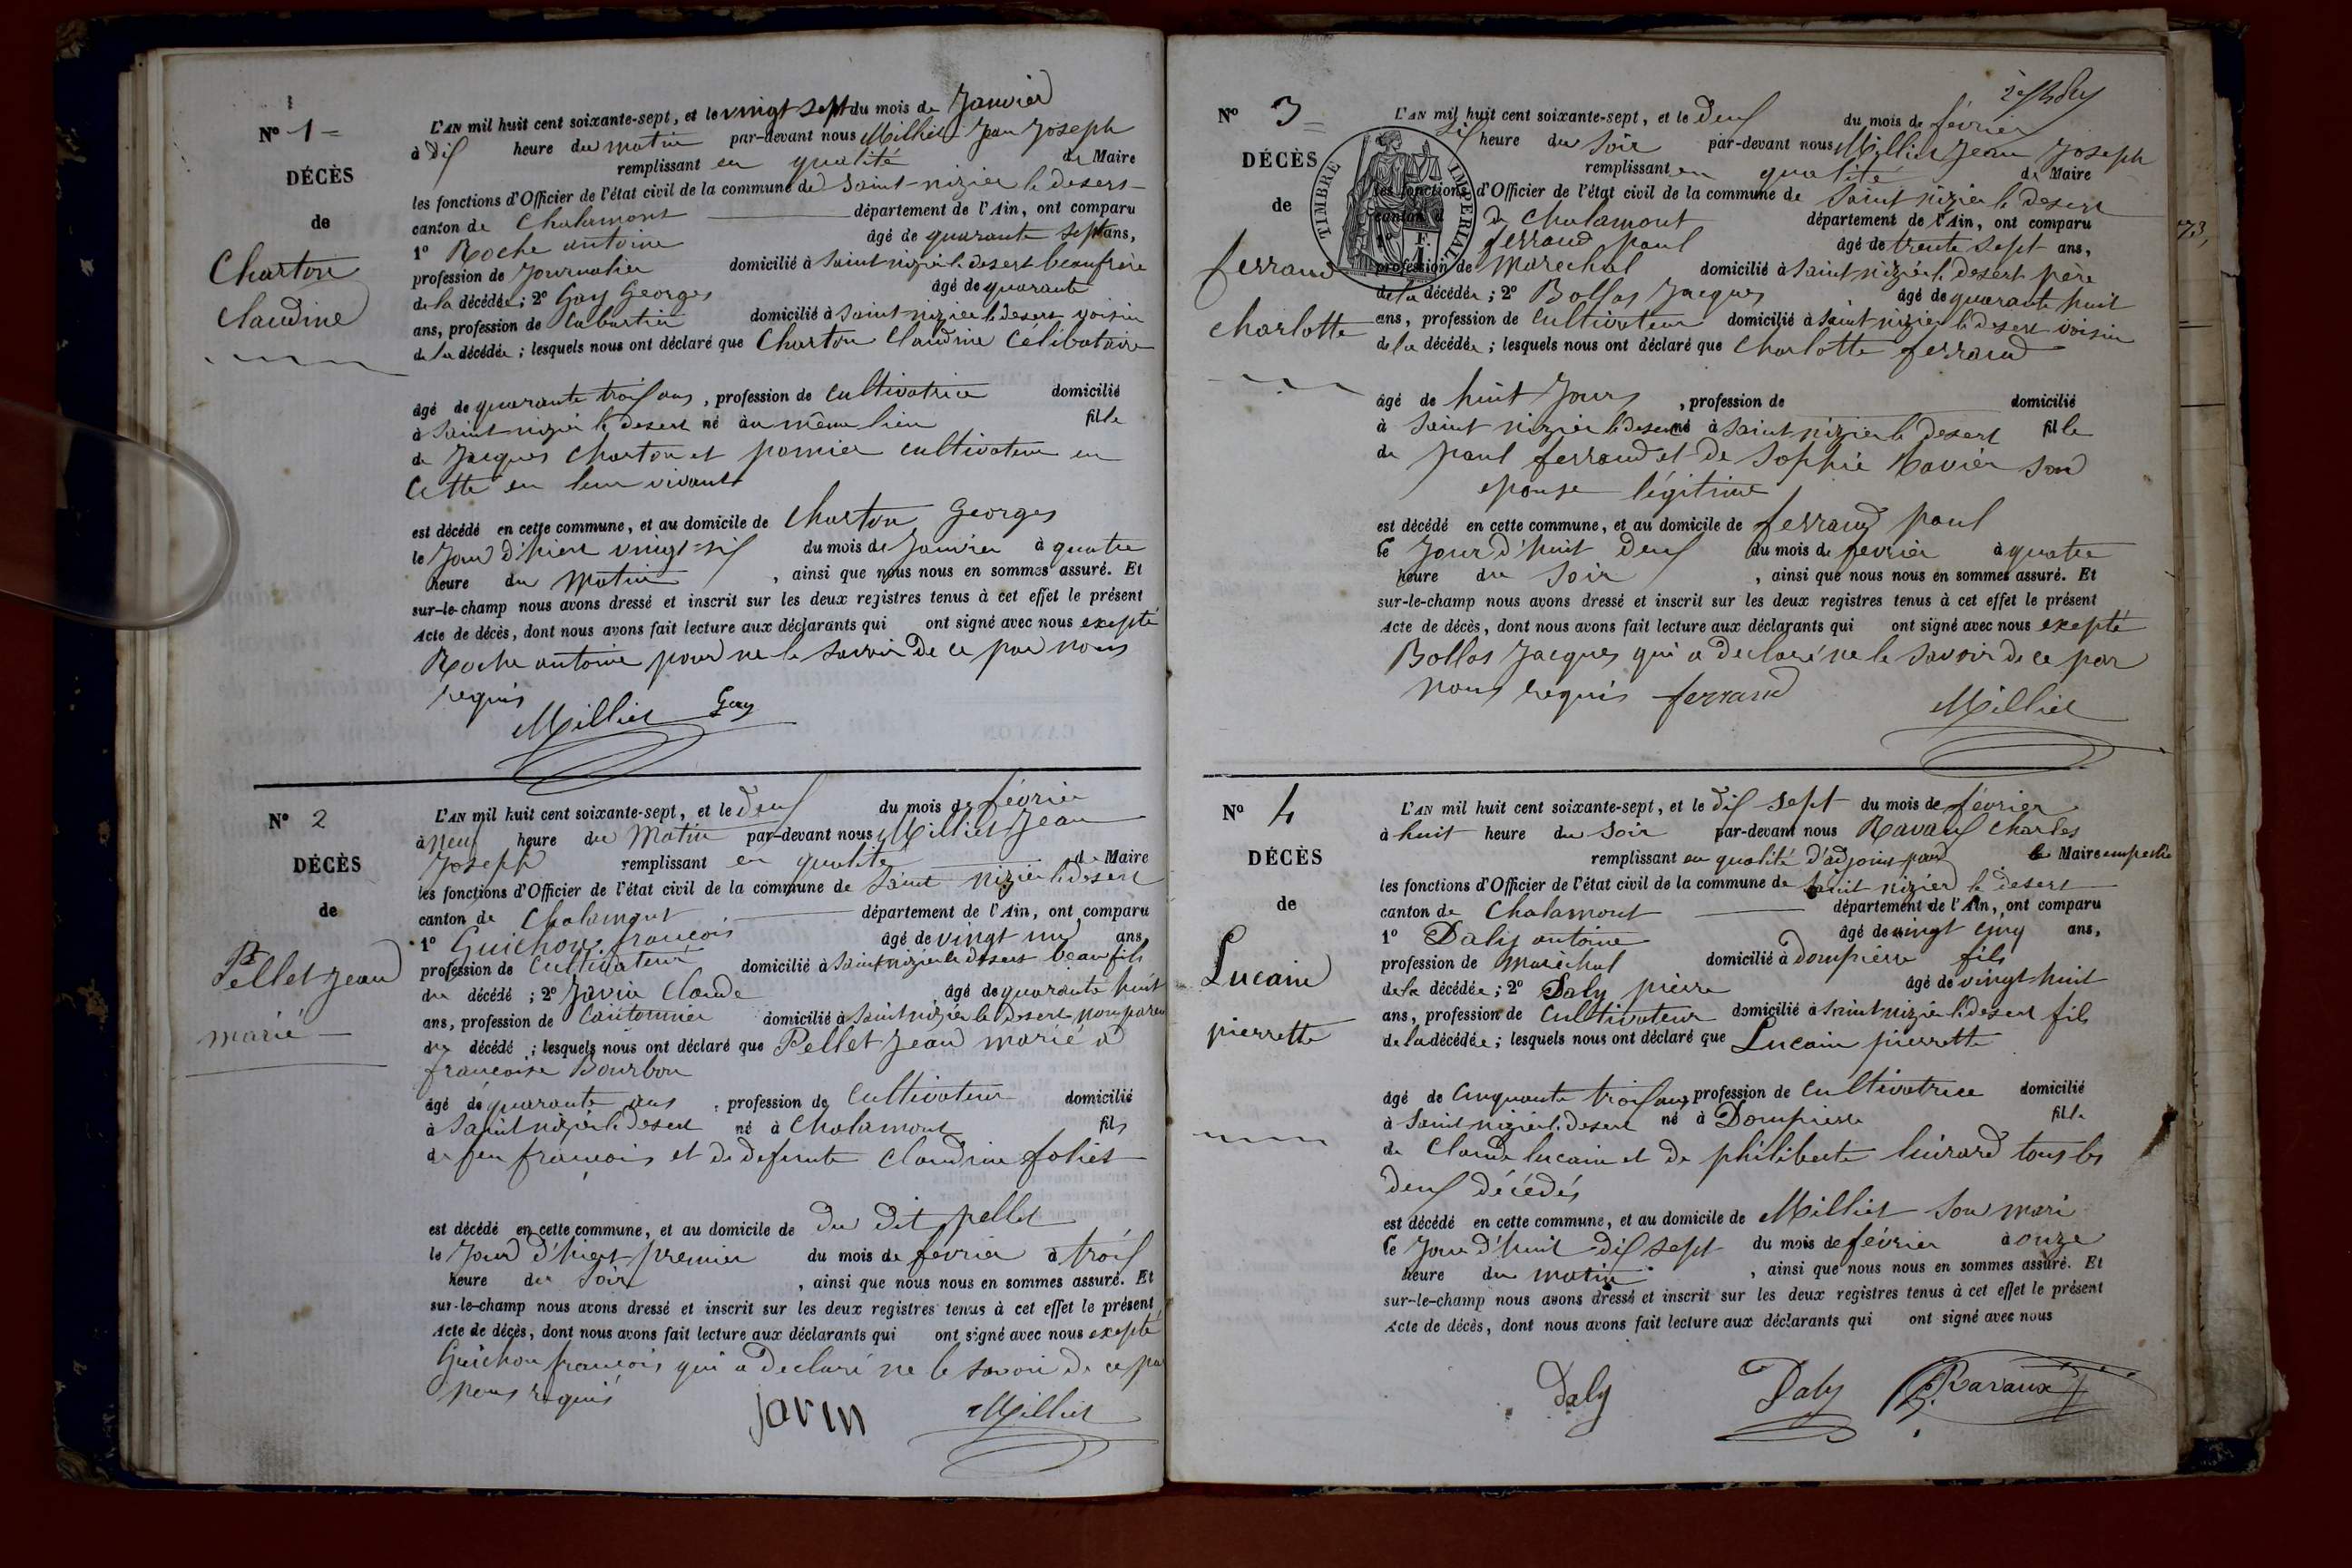 N° 1
DÉCÈS
de
Charton
Claudine
L'AN mil huit cent soixante-sept, et le vingt sept du mois de Janvier
à dix heure du matin par-devant nous Milliet Jean Joseph
remplissant en qualité de Maire
les fonctions d'Officier de l'état civil de la commune de Saint-nizier le desert
canton de Chalamont département de l'Ain, ont comparu
1° Roche antoine âgé de quarante sept ans,
profession de Journalier domicilié à Saint nizier le desert beaufrère
de la décédée; 2° Gay Georges âgé de quarante
ans, profession de Cabartier domicilié à Saint-nizier le desert voisin
de la décédée; lesquels nous ont déclaré que Charton Claudine Célibataire
âgé de quarante trois ans, profession de Cultivatrice domicilié
à Saint-nizier le desert né au même lieu fille
de Jacques Charton et pomier cultivateur en
Cette en leur vivant
est décédé en cette commune, et au domicile de Charton Georges
le Jour d'hier vingt-six du mois de Janvier à quatre
heure du Matin, ainsi que nous nous en sommes assuré. Et
sur-le-champ nous avons dressé et inscrit sur les deux registres tenus à cet effet le présent
Acte de décès, dont nous avons fait lecture aux déclarants qui ont signé avec nous exepté
Roche antoine pour ne le savoir de ce par nous
requis
Milliet Gay
N° 2
DÉCÈS
de
Pellet Jean
marié
L'AN mil huit cent soixante-sept, et le deux du mois de février
à neuf heure du Matin par-devant nous Milliet Jean
Joseph remplissant en qualité de Maire
les fonctions d'Officier de l'état civil de la commune de Saint nizier le desert
canton de Chalamont département de l'Ain, ont comparu
1° Guichon francois âgé de vingt un ans,
profession de Cultivateur domicilié à Saint nizier le desert beau fils
du décédé; 2° Javin Claude âgé de quarante huit
ans, profession de Cantonnier domicilié à Saint nizier le desert non paren
du décédé; lesquels nous ont déclaré que Pellet Jean marié a
francoise Bourbon
âgé de quarante ans, profession de Cultivateur domicilié
à Saint nizier le desert né à Chalamont fils
de feu francois et de defunte Claudine foliet
est décédé en cette commune, et au domicile de du dit pellet
le Jour d'hier premier du mois de fevrier à trois
heure du Soir, ainsi que nous nous en sommes assuré. Et
sur-le-champ nous avons dressé et inscrit sur les deux registres tenus à cet effet le présent
Acte de décès, dont nous avons fait lecture aux déclarants qui ont signé avec nous exepté
Guichon francois qui a declaré ne le savoir de ce par
nous requis
javin Milliet
N° 3
DÉCÈS
de
ferrand
charlotte
TIMBRE IMPERIAL
L'AN mil huit cent soixante-sept, et le deux du mois de février
six heure du Soir par-devant nous Milliet Jean Joseph
remplissant en qualité de Maire
les fonctions d'Officier de l'état civil de la commune de Saint nizier le desert
canton d de Chalamont département de l'Ain, ont comparu
1° ferrand paul âgé de trente sept ans,
profession de Marechal domicilié à Saint nizier le desert père
de la décédée; 2° Bollas Jacques âgé de quarante huit
ans, profession de Cultivateur domicilié à Saint nizier le desert voisin
de la décédée; lesquels nous ont déclaré que Charlotte ferrand
âgé de huit Jours, profession de domicilié
à Saint nizier le desert né à Saint nizier le desert fille
de paul ferrand et de Sophie Ravier son
epouse légitime
est décédé en cette commune, et au domicile de ferrand paul
le Jour d'huit deux du mois de fevrier à quatre
heure du Soir, ainsi que nous nous en sommes assuré. Et
sur-le-champ nous avons dressé et inscrit sur les deux registres tenus à cet effet le présent
Acte de décès, dont nous avons fait lecture aux déclarants qui ont signé avec nous exepté
Bollas Jacques qui a declaré ne le savoir de ce par
nous requis ferrand Milliet
N° 4
DÉCÈS
de
Lucain
pierrette
L'AN mil huit cent soixante-sept, et le dix sept du mois de février
à huit heure du Soir par-devant nous Ravaux Charles
remplissant en qualité d'adjoint pour le Maire empeché
les fonctions d'Officier de l'état civil de la commune de Saint nizier le desert
canton de Chalamont département de l'Ain, ont comparu
1° Daly antoine âgé de vingt cinq ans,
profession de Maréchal domicilié à dompierre fils
de la décédée; 2° Daly pierre âgé de vingt huit
ans, profession de Cultivateur domicilié à Saint nizier le desert fils
de la décédée; lesquels nous ont déclaré que Lucain pierrette
âgé de Cinquante trois ans profession de Cultivatrice domicilié
à Saint nizier le desert né à Dompierre fille
de Claude lucain et de philiberte luirard tous les
deux décédés
est décédé en cette commune, et au domicile de Milliet Son mari
le Jour d'huit dix sept du mois de février à onze
heure du matin, ainsi que nous nous en sommes assuré. Et
sur-le-champ nous avons dressé et inscrit sur les deux registres tenus à cet effet le présent
Acte de décès, dont nous avons fait lecture aux déclarants qui ont signé avec nous
Daly Daly Ravaux